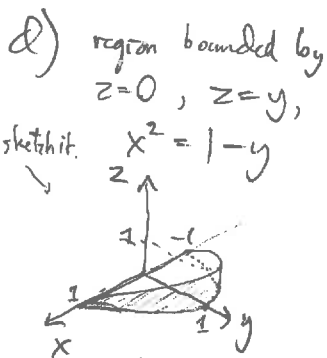 Q) region bounded by
z=0, z=y,
x² = 1-y
sketch it.
z
1
-1
1
1
x
y